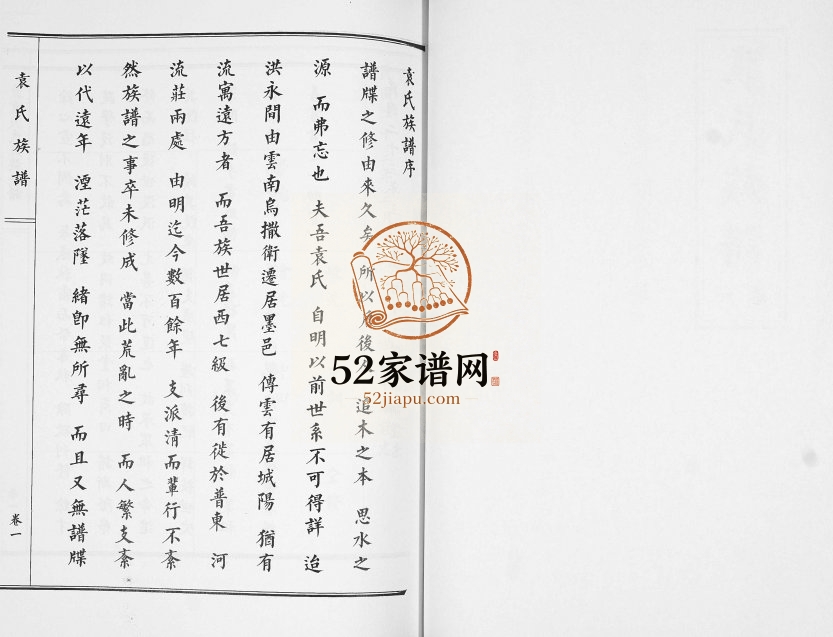 袁氏族譜序
譜牒之修由來久矣 所以 後 追木之本 思水之
源 而弗忘也 夫吾袁氏 自明以前世系不可得詳 迨
洪永間由雲南烏撒衛遷居墨邑 傳雲有居城陽 猶有
流寓遠方者 而吾族世居西七級 後有徙於普東 河
流莊兩處 由明迄今數百餘年 支派清而輩行不紊
然族譜之事卒未修成 當此荒亂之時 而人繁支紊
以代遠年 湮茫落墜 緒卽無所尋 而且又無譜牒
袁氏族譜
卷一
52家谱网
52jiapu.com